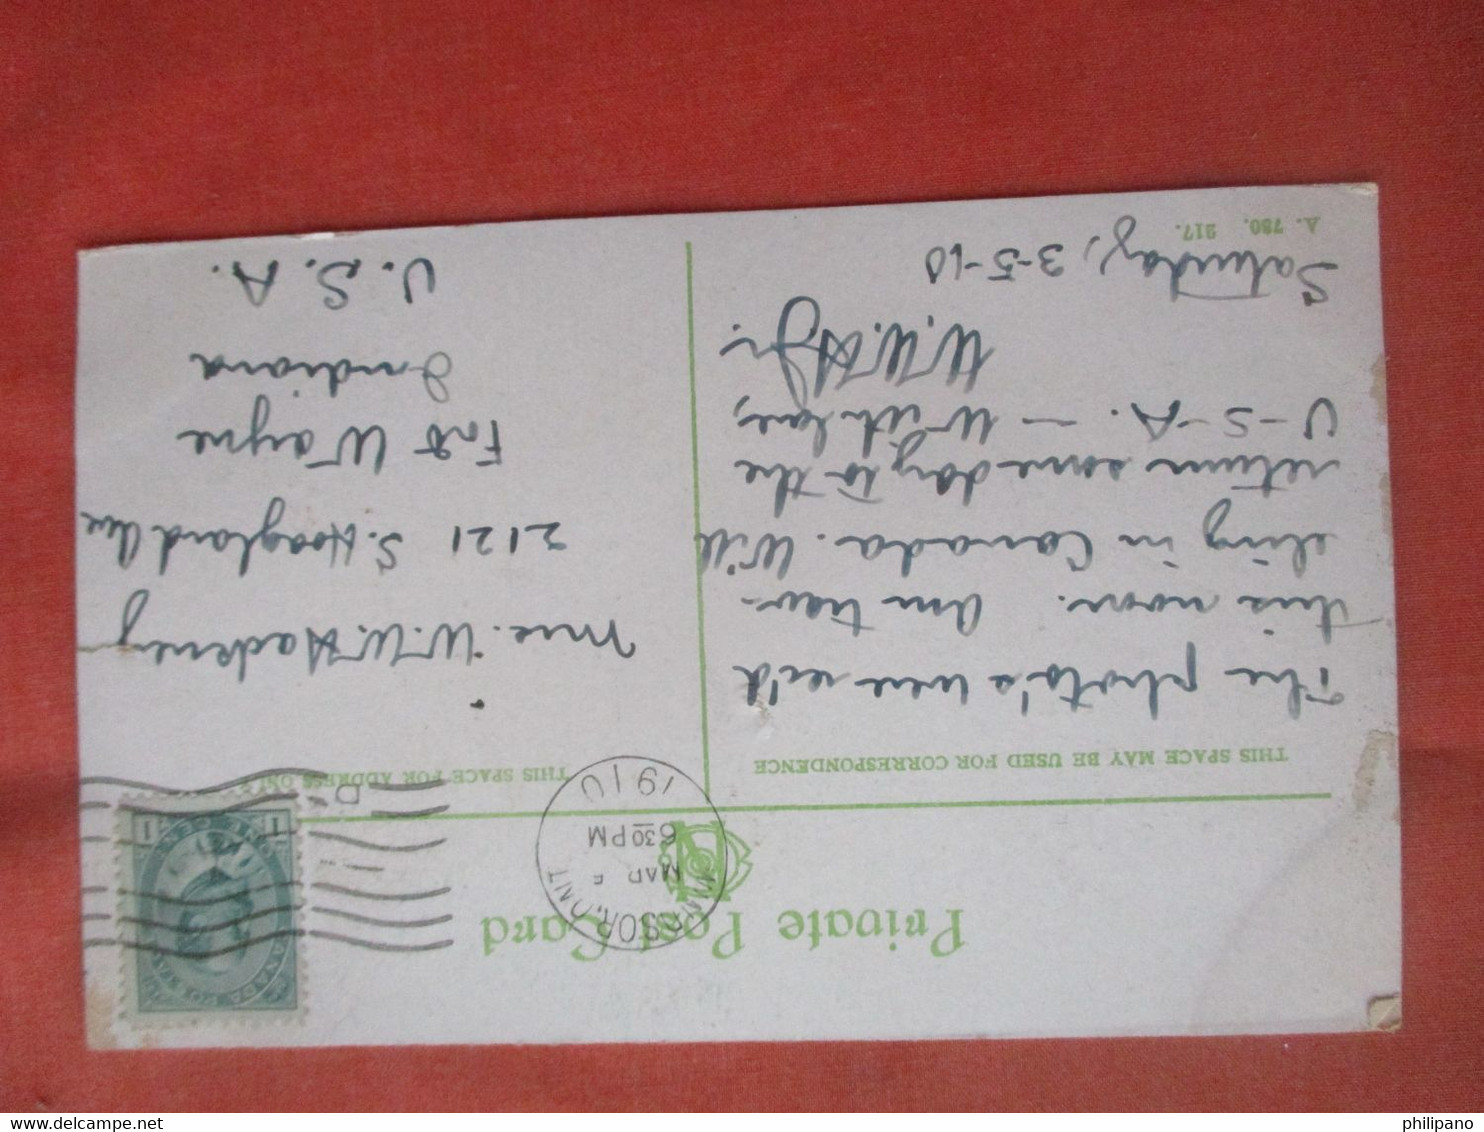 Private Post Card
WINDSOR, ONT
MAR 5
6 30 PM
1910
D
CANADA POSTAGE
1 1
THIS SPACE MAY BE USED FOR CORRESPONDENCE
The photo's were rec'd
this noon. Am trav-
eling in Canada. Will
return some day to the
U-S-A. — With love,
W.W.H. Jr.
Saturday, 3-5-10
A. 780. 217.
THIS SPACE FOR ADDRESS ONLY
Mrs. W.W. Hackney
2121 S. Hoagland Ave
Fort Wayne
Indiana
U.S.A.
philipano